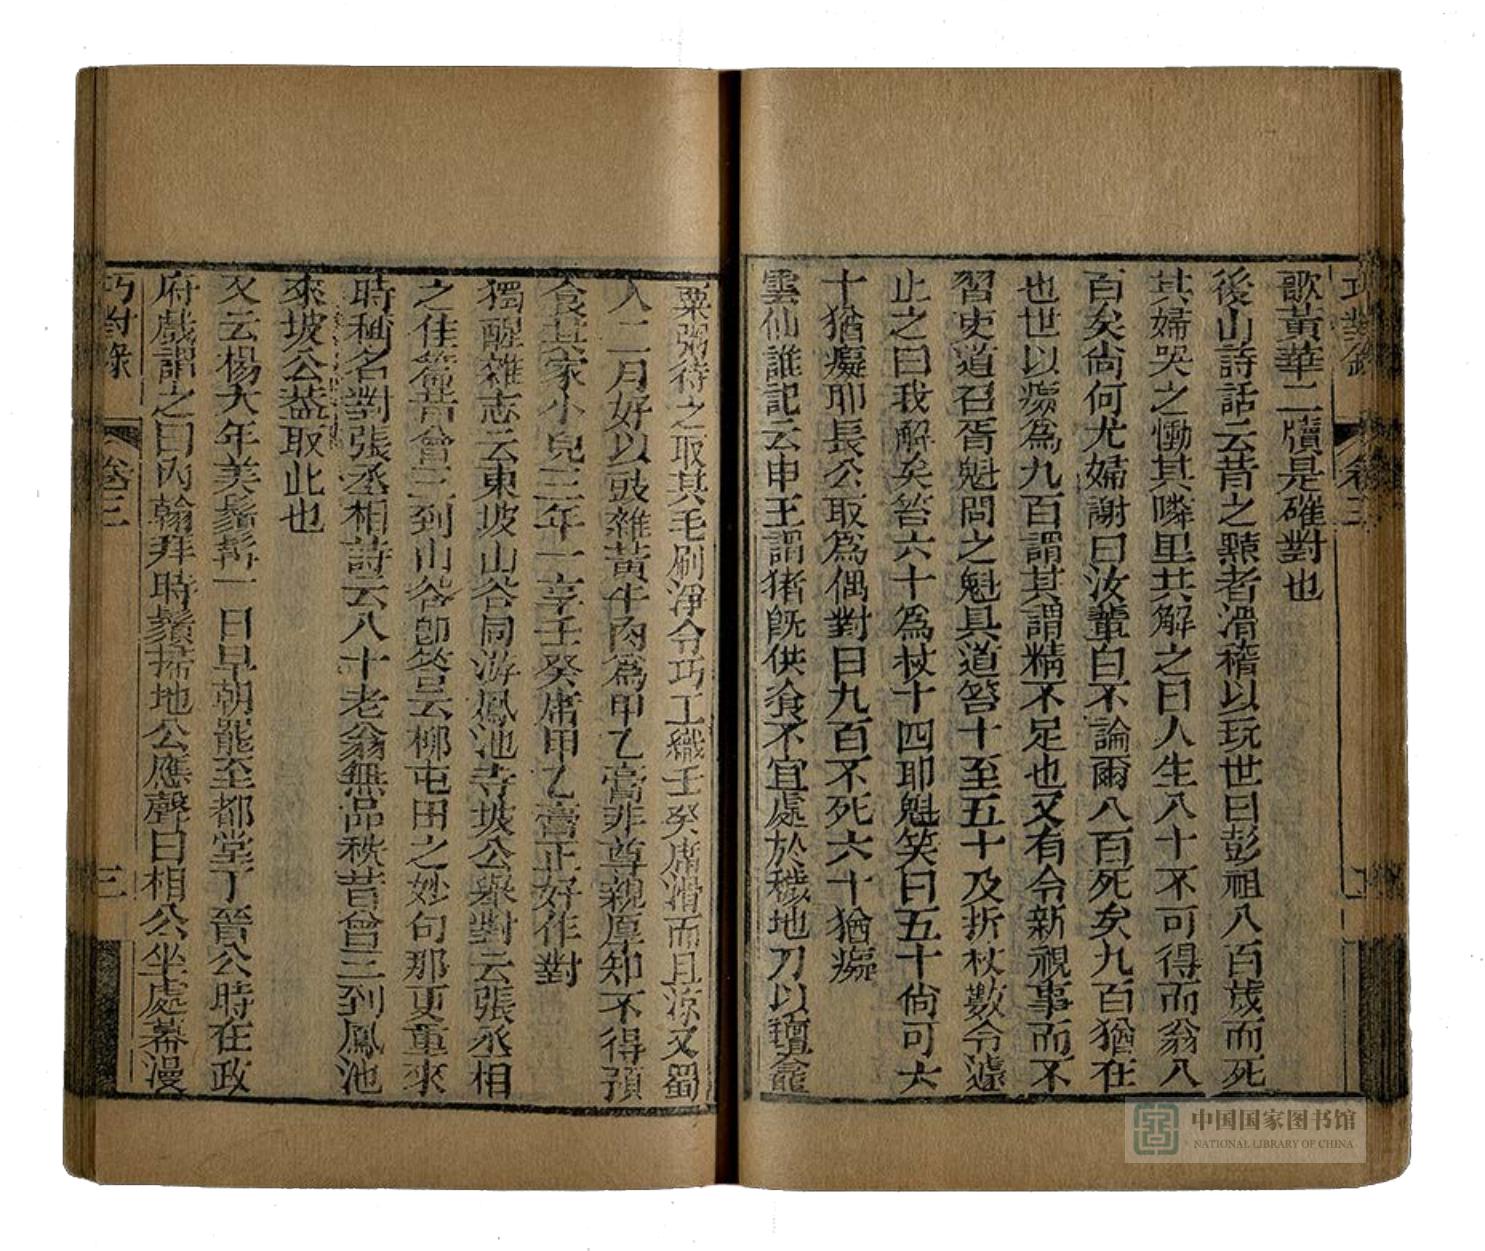 巧對錄
卷三
歌黃華二牘是確對也
後山詩話云昔之黠者滑稽以玩世曰彭祖八百歲而死
其婦哭之慟其隣里共解之曰人生八十不可得而翁八
百矣尙何尤婦謝曰汝輩自不諭爾八百死矣九百猶在
也世以癡爲九百謂其謂精不足也又有令新視事而不
習吏道召胥魁問之魁具道笞十至五十及折杖數令遽
止之曰我解矣笞六十爲杖十四耶魁笑曰五十尙可六
十猶癡耶長公取爲偶對曰九百不死六十猶癡
雲仙誰記云申王謂猪旣供食不宜處於穢地乃以氊龕
粟粥待之取其毛刷淨令巧工織壬癸席滑而且涼又蜀
人二月好以豉雜黃牛肉爲甲乙膏非尊親厚知不得預
食其家小兒三年一享壬癸席甲乙膏正好作對
獨醒雜志云東坡山谷同游鳳池寺坡公舉對云張丞相
之佳篇昔曾三到山谷卽答云柳屯田之妙句那更重來
時稱名對張丞相詩云八十老翁無品秩昔曾三到鳳池
來坡公葢取此也
又云楊大年美鬚髯一日早朝罷至都堂丁晉公時在政
府戲謂之曰內翰拜時鬚掃地公應聲曰相公坐處幕漫
巧對錄
卷三
三
中国国家图书馆
NATIONAL LIBRARY OF CHINA